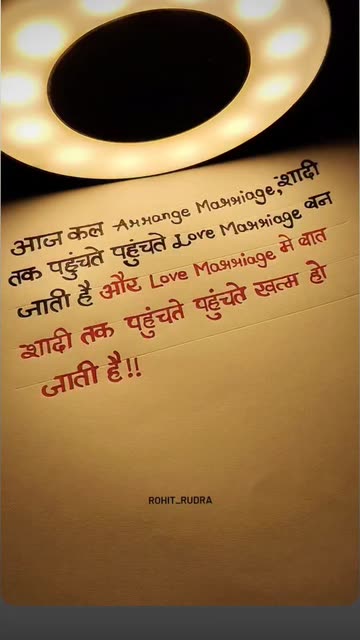 आज कल Arrange Marriage,शादी
तक पहुंचते पहुंचते Love Marriage बन
जाती है और Love Marriage मे बात
शादी तक पहुंचते पहुंचते खत्म हो
जाती है!!
ROHIT_RUDRA